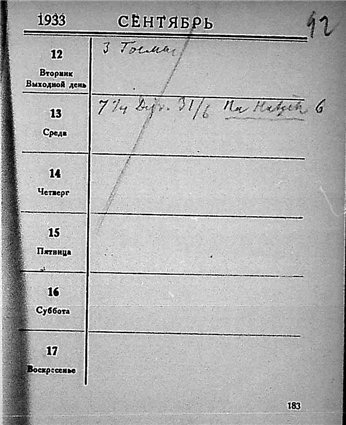 1933 СЕНТЯБРЬ 92
12 3
Вторник
Выходной день
13 7 1/4 31/6 6
Среда
14
Четверг
15
Пятница
16
Суббота
17
Воскресенье
183